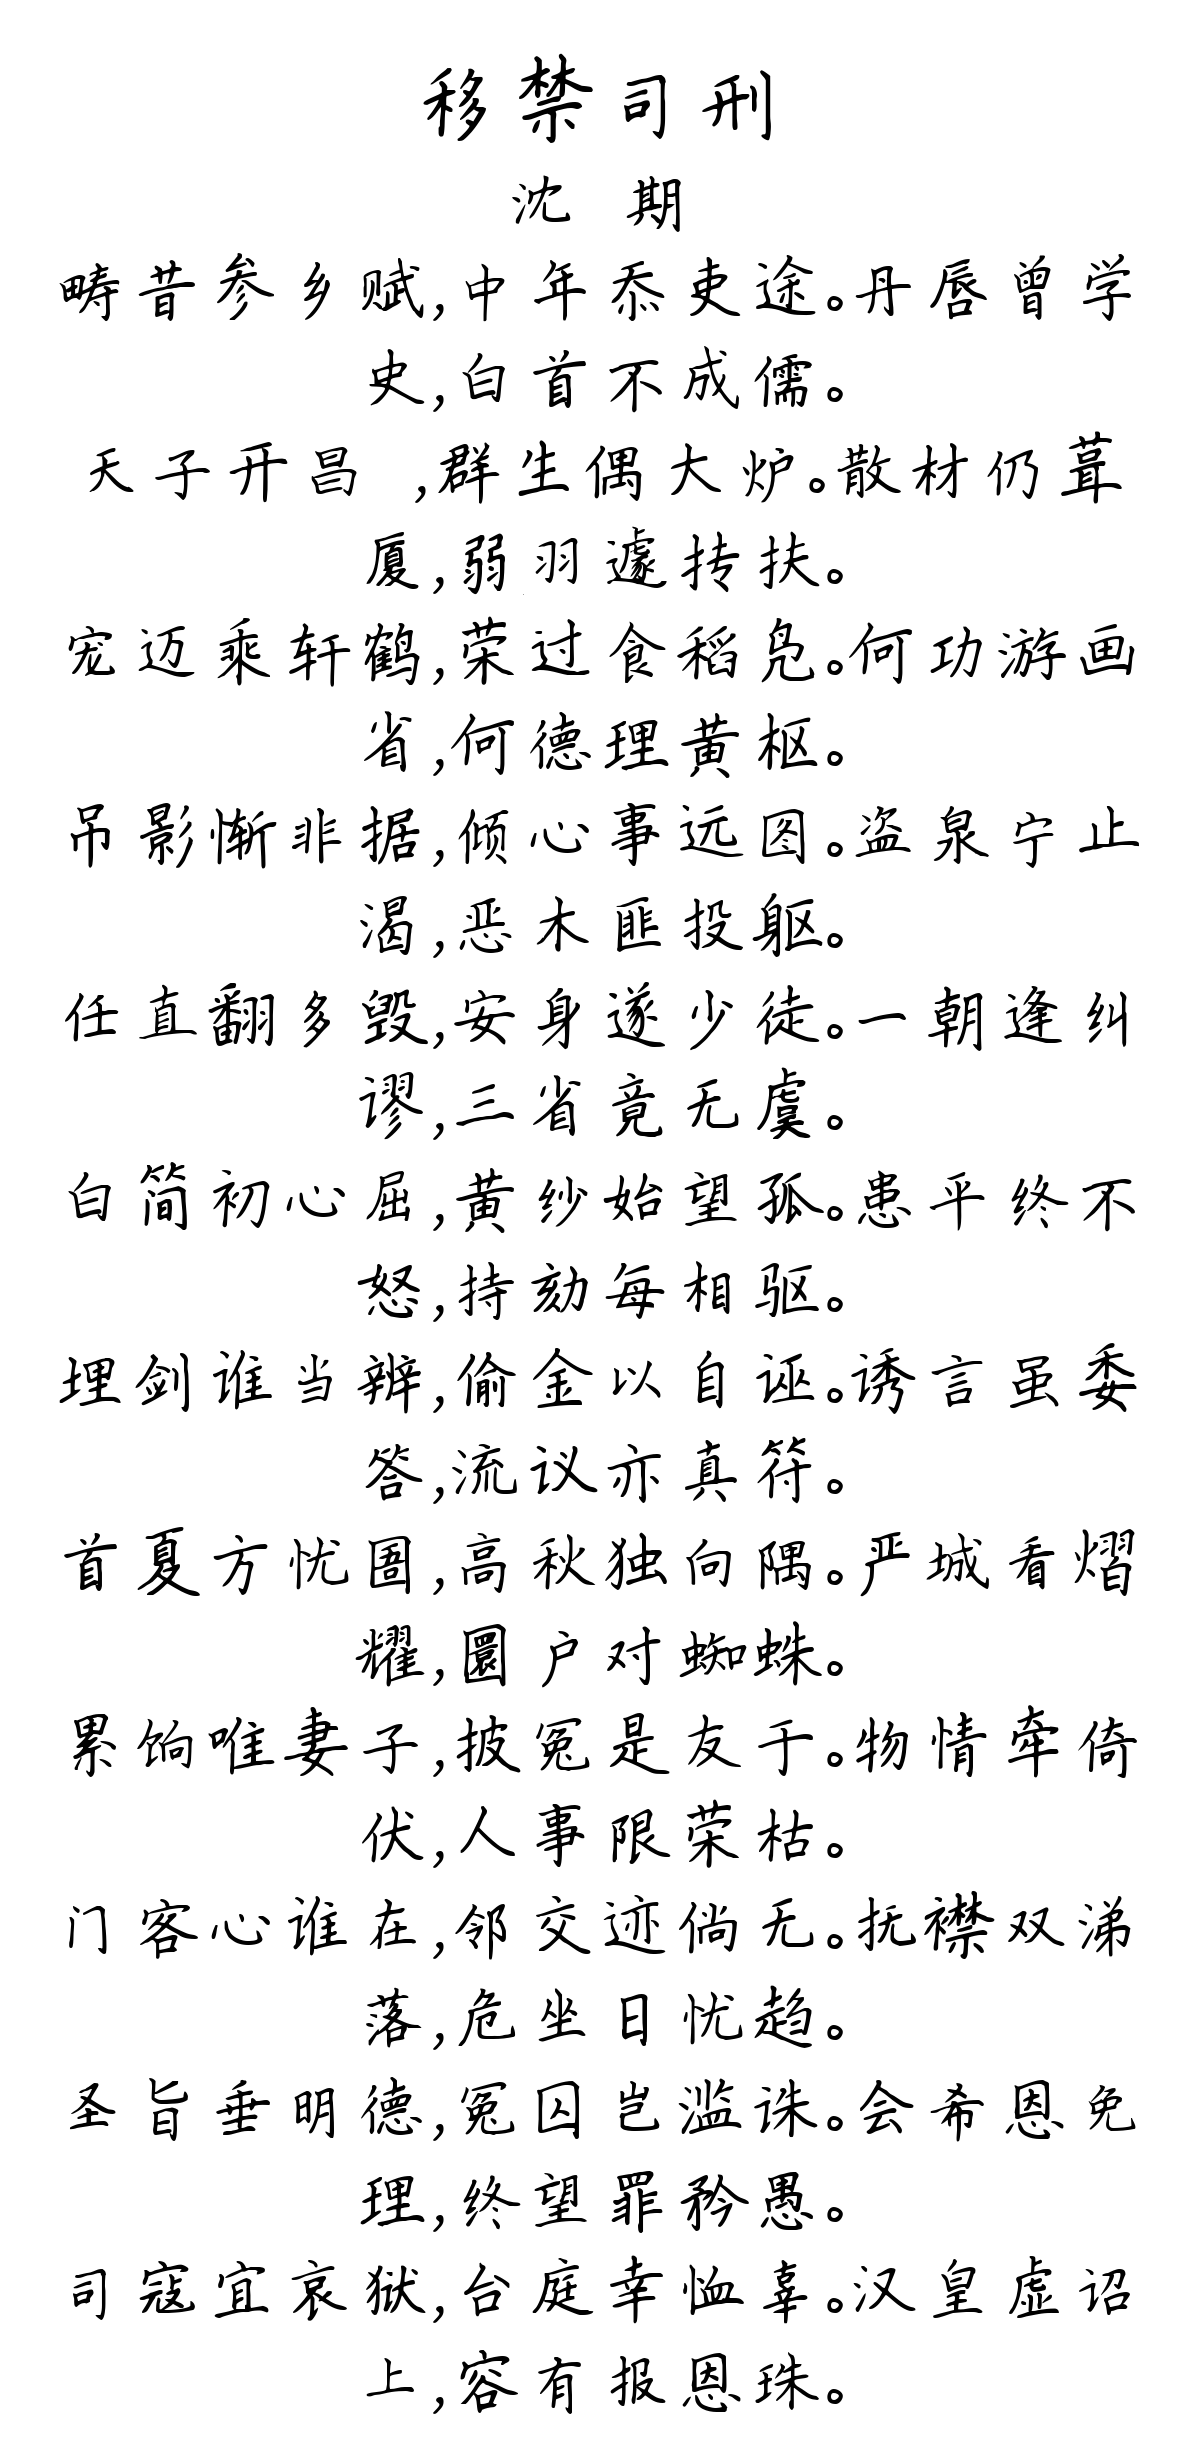 移禁司刑
沈 期
畴昔参乡赋,中年忝吏途。丹唇曾学
史,白首不成儒。
天子开昌 ,群生偶大炉。散材仍葺
厦,弱羽遽抟扶。
宠迈乘轩鹤,荣过食稻凫。何功游画
省,何德理黄枢。
吊影惭非据,倾心事远图。盗泉宁止
渴,恶木匪投躯。
任直翻多毁,安身遂少徒。一朝逢纠
谬,三省竟无虞。
白简初心屈,黄纱始望孤。患平终不
怒,持劾每相驱。
埋剑谁当辨,偷金以自诬。诱言虽委
答,流议亦真符。
首夏方忧圄,高秋独向隅。严城看熠
耀,圜户对蜘蛛。
累饷唯妻子,披冤是友于。物情牵倚
伏,人事限荣枯。
门客心谁在,邻交迹倘无。抚襟双涕
落,危坐日忧趋。
圣旨垂明德,冤囚岂滥诛。会希恩免
理,终望罪矜愚。
司寇宜哀狱,台庭幸恤辜。汉皇虚诏
上,容有报恩珠。